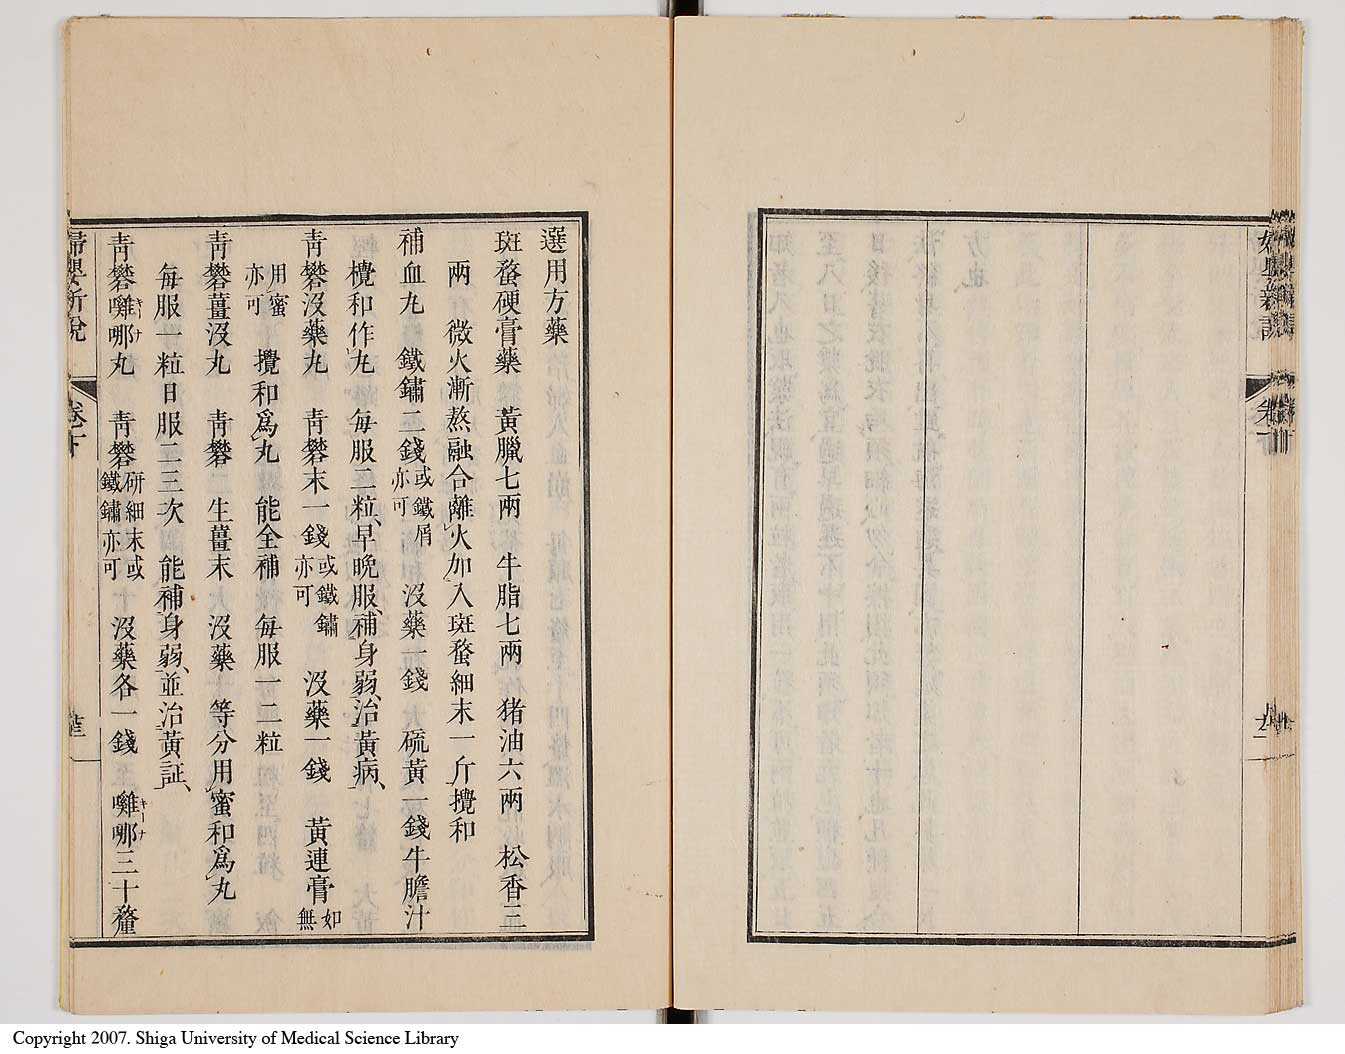 選用方藥
斑蝥硬膏藥　黃臘七兩　牛脂七兩　猪油六兩　松香三
兩　微火漸熬融合離火加入斑蝥細末一斤攪和
補血丸　鐵鏽二錢或鐵屑亦可　沒藥一錢　硫黃一錢牛膽汁
攪和作丸　每服二粒、早晚服、補身弱、治黃病、
靑礬沒藥丸　靑礬末一錢或鐵鏽亦可　沒藥一錢　黃連膏如無
用蜜亦可　攪和爲丸　能全補　每服一二粒
靑礬薑沒丸　靑礬　生薑末　沒藥　等分用蜜和爲丸
每服一粒日服二三次　能補身弱、並治黃証、
靑礬囄哪丸　靑礬研細末或鐵鏽亦可　沒藥各一錢　囄哪三十釐
キーナ
キーナ
婦嬰新說
Copyright 2007. Shiga University of Medical Science Library